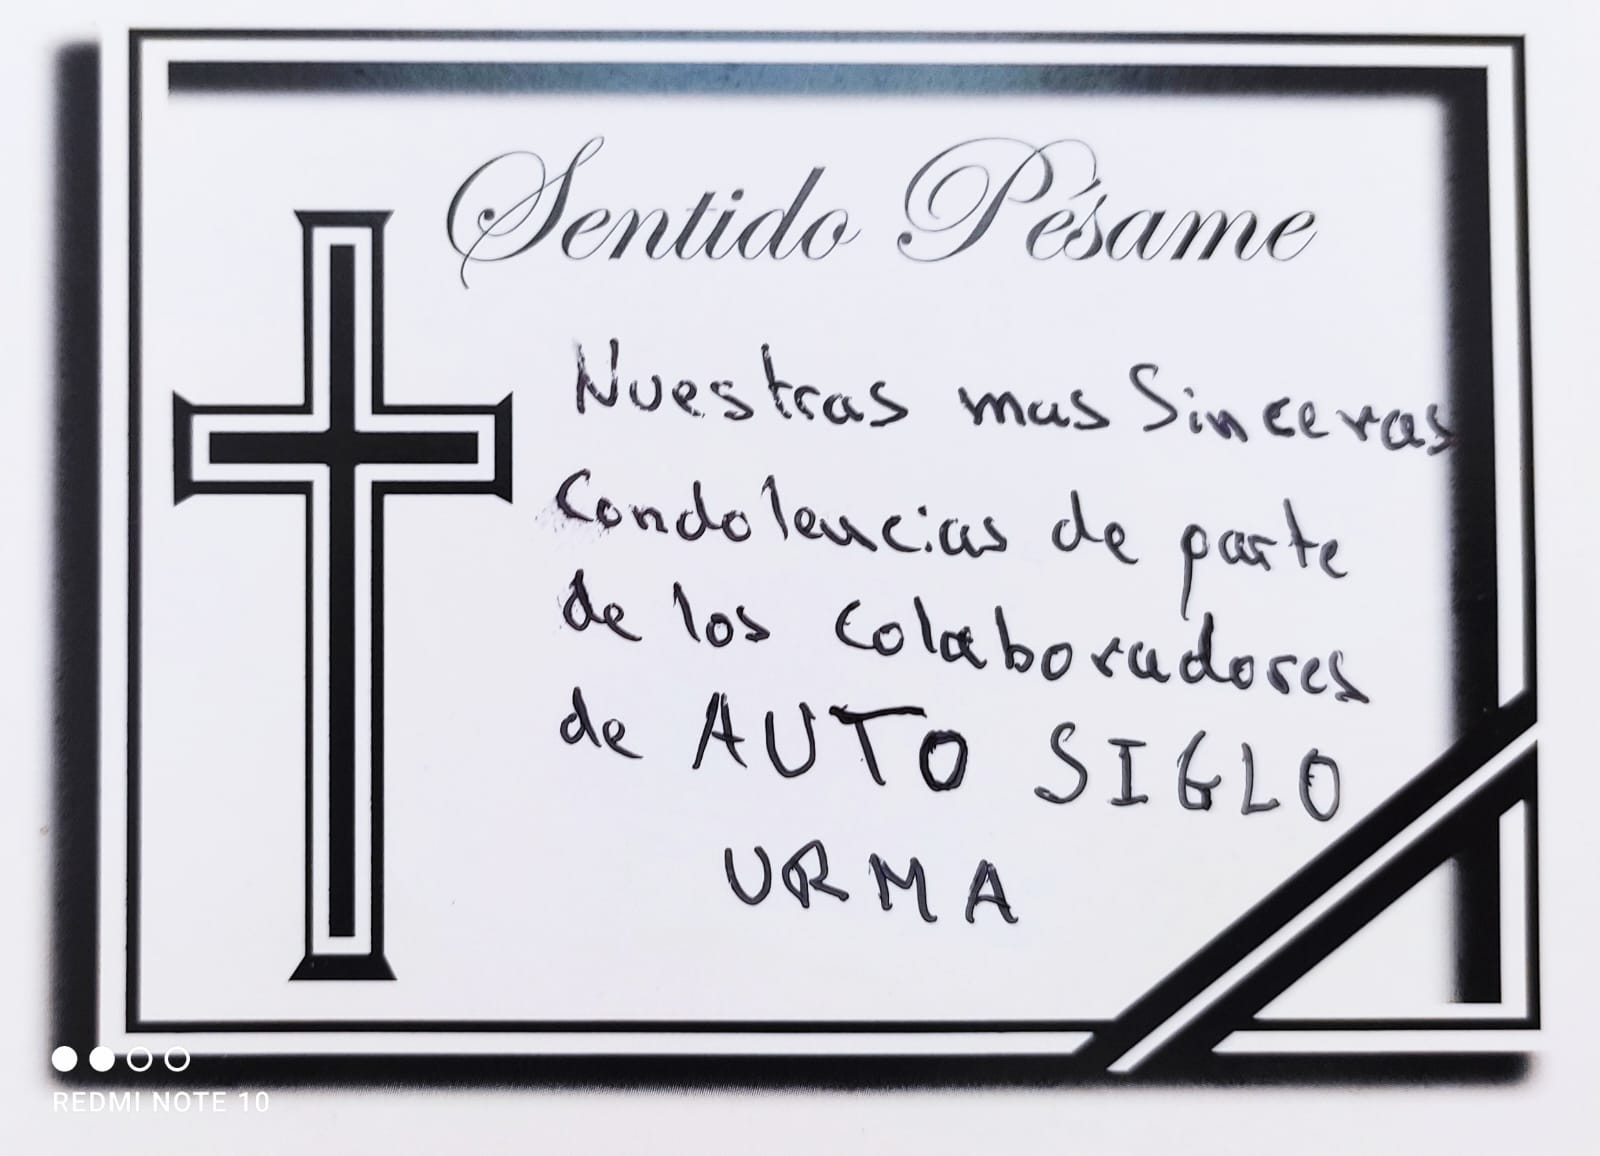 Sentido Pésame
Nuestras mas Sinceras
Condolencias de parte
de los Colaboradores
de AUTO SIGLO
URMA
REDMI NOTE 10